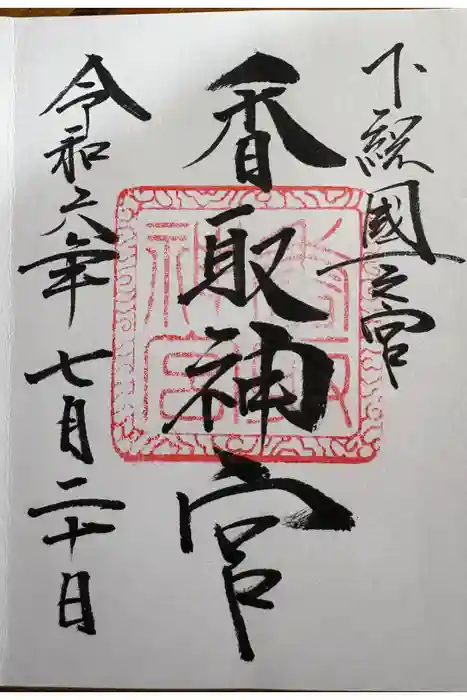 下総國一之宮
香取神宮
令和六年七月二十日
香取
神宮